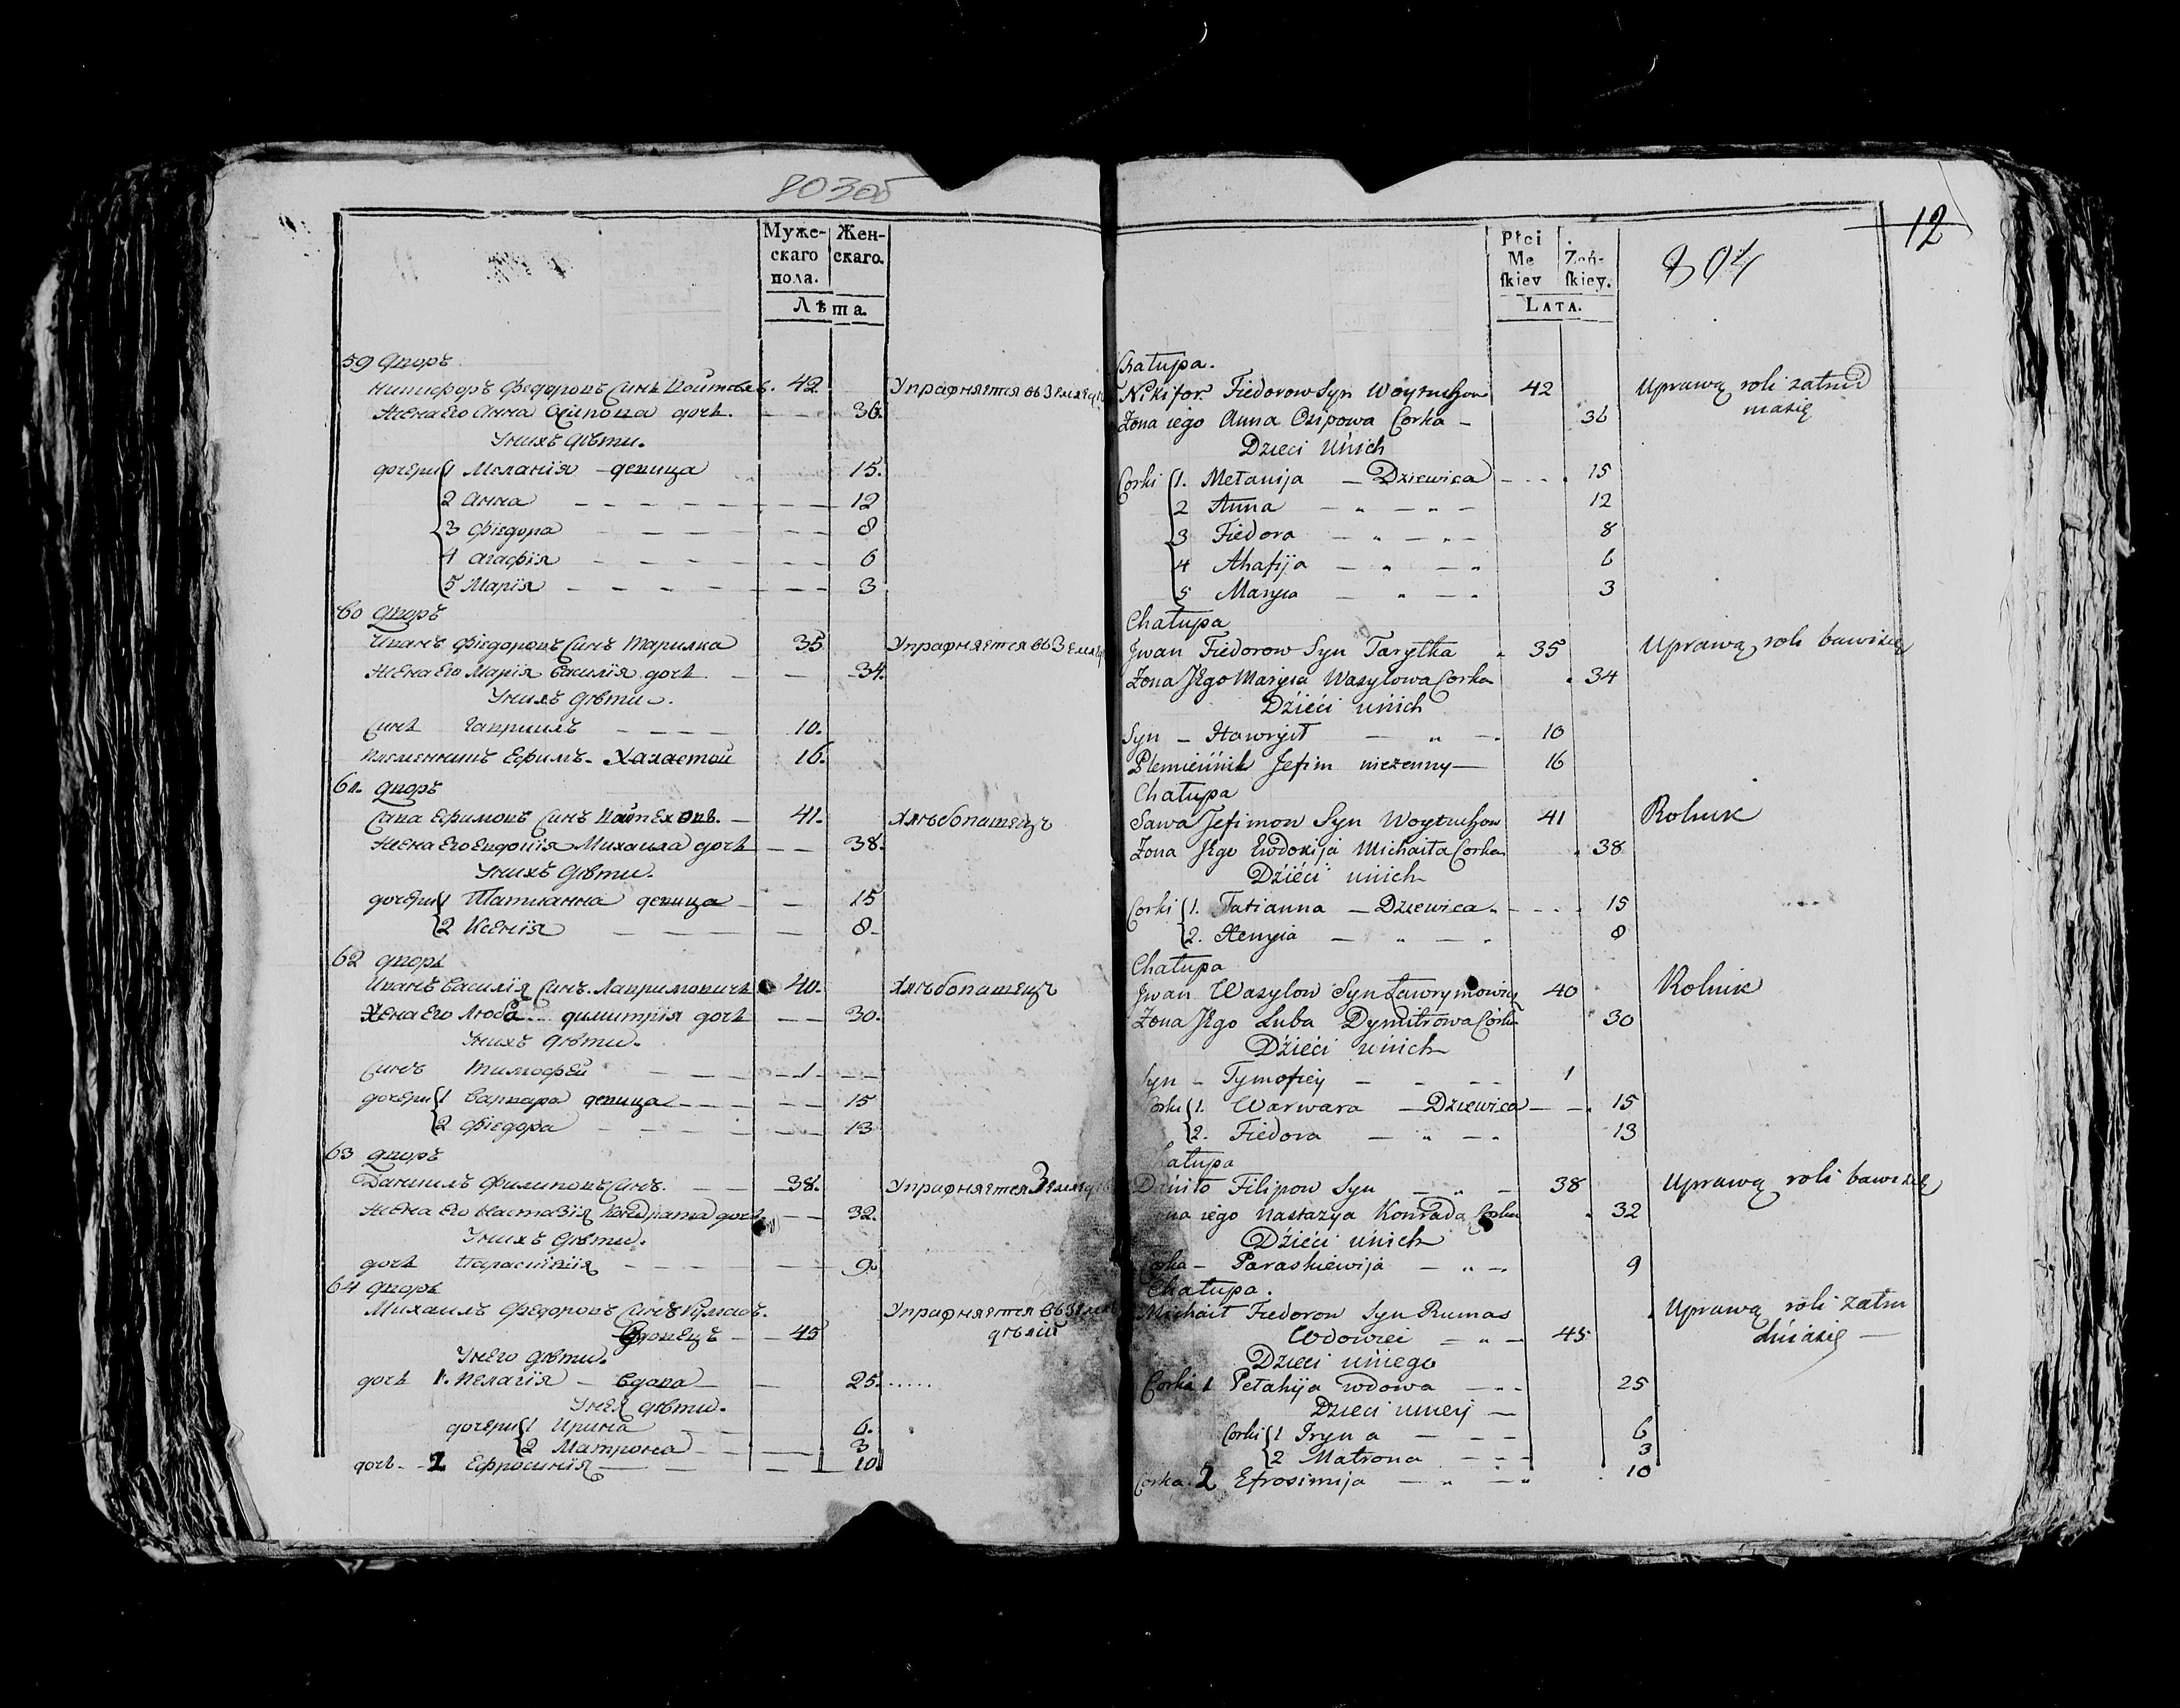 803об
Муже-
скаго
пола.
Жен-
скаго.
Лѣта.
59 дворъ
Никифоръ Федоровъ Синъ Войтеховъ. 42. Упражняется въ Землед
Жена Его Анна Осипова дочь. 36.
Унихъ дѣти.
дочери 1 Меланія девица 15.
2 Анна 12
3 Фіедора 8
4 Агафія 6
5 Марія 3
60 дворъ
Иванъ Фіедоровъ Синъ Тарилка 35 Упражняется въ Земле
Жена Его Марія Василія дочь 34.
Унихъ дѣти.
Синъ Гавриилъ 10.
племенникъ Ефимъ. Халастой 16.
61. дворъ
Сава Ефимовъ Синъ Войтеховъ. 41. Хлѣбопашецъ
Жена Его Евдокія Михаила дочь 38.
Унихъ дѣти.
дочери 1 Татианна девица 15
2 Ксенія 8
62 дворъ
Иванъ Василія Синъ. Лавримовичъ 40. Хлѣбопашецъ
Жена Его Люба димитрія дочь 30.
Унихъ дѣти.
Синъ Тимофей 1
дочери 1 Варвара девица 15
2 Фіедора 13
63 дворъ
Даниилъ Филиповъ Синъ. 38. Упражняется Землед
Жена Его Настазія Кондрата дочь 32.
Унихъ дѣти.
дочь Параскивія 9.
64 дворъ
Михаилъ Федоровъ Синъ Румасъ. Упражняется въ Земле
Вдовецъ 45 дѣлій
Унего дѣти.
дочь 1. Пелагія Вдова 25.
Унея дѣти.
дочери 1 Ирина 6.
2 Матрона 3
дочь 2 Ефросинія 10
12
804
Płci
Me
ſkiey
Żeń-
ſkiey.
LATA.
Chałupa.
Nikifor Fiedorow Syn Woytuchow 42 Uprawą roli zatrud
Żona iego Anna Osipowa Corka 36 niasię
Dzieci Unich
Corki 1. Mełanija Dziewica 15
2 Anna 12
3 Fiedora 8
4 Ahafija 6
5 Maryia 3
Chałupa
Jwan Fiedorow Syn Taryłka 35 Uprawą roli bawisię
Żona Jego Maryia Wasylowa Corka 34
Dzieci unich
Syn Hawryił 10
Plemiennik Jefim niezenny 16
Chałupa
Sawa Jefimow Syn Woytuchow 41 Rolnik
Żona Jego Ewdokija Michaiła Corka 38
Dzieci unich
Corki 1. Tatianna Dziewica 15
2. Xenyia 8
Chałupa
Jwan Wasylow Syn Ławrymowicz 40 Rolnik
Żona Jego Luba Dymitrowa Corka 30
Dzieci unich
Syn Tymofiey 1
Corki 1. Warwara Dziewica 15
2. Fiedora 13
hałupa
Daniło Filipow Syn 38 Uprawą roli bawisię
ona iego Nastazya Konrada Corka 32
Dzieci unich
Corka Paraskiewija 9
Chałupa.
Michaił Fiedorow Syn Rumas Uprawą roli zatru
Wdowiec 45 dniasię
Dzieci uniego
Corka 1 Pełahija wdowa 25
Dzieci uniey
Corki 1 Iryna 6
2 Matrona 3
Corka 2 Efrosimija 10